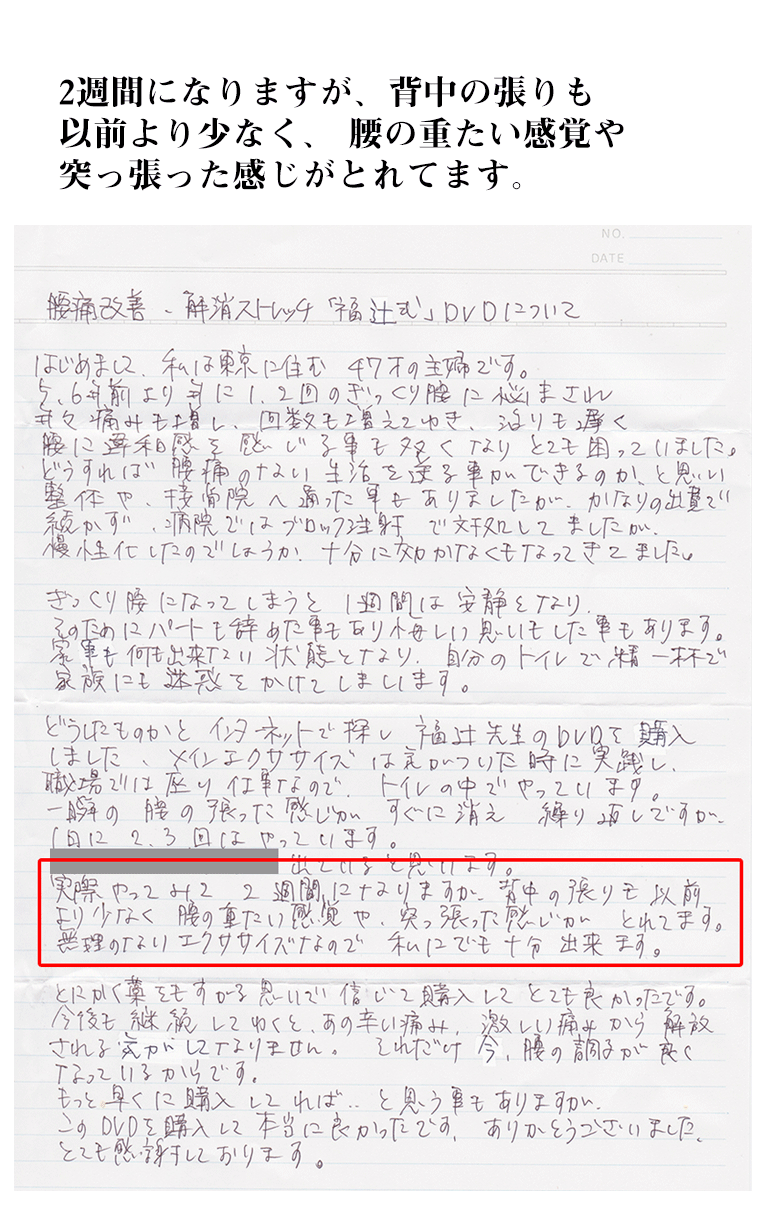 2週間になりますが、背中の張りも
以前より少なく、 腰の重たい感覚や
突っ張った感じがとれてます。
NO.
DATE
腰痛改善、解消ストレッチ「福辻式」DVDについて
はじめまして、私は東京に住む 47才の主婦です。
5、6年前より年に1、2回のぎっくり腰に悩まされ
年々痛みも増し、回数も増えてゆき、治りも遅く
腰に違和感を感じる事も多くなりとても困っていました。
どうすれば腰痛のない生活を送る事ができるのか、と思い
整体や、接骨院へ通った事もありましたが、かなりの出費で
続かず、病院ではブロック注射で対処してましたが、
慢性化したのでしょうか、十分に効かなくもなってきてました。
ぎっくり腰になってしまうと 1週間は安静となり、
そのためにパートも辞めた事もあり悔しい思いもした事もあります。
家事も何も出来ない状態となり、自分のトイレで精一杯で
家族にも迷惑をかけてしまいます。
どうしたものかと インターネットで探し 福辻先生のDVDを購入
しました、メインエクササイズは気がついた時に実践し、
職場では座り仕事なので、トイレの中でやっています。
一瞬の 腰の張った感じが すぐに消え 繰り返しですが、
1日に 2、3回はやっています。
出ていると思います。
実際やってみて 2週間になりますが、背中の張りも以前
より少なく 腰の重たい感覚や、突っ張った感じが とれてます。
無理のないエクササイズなので 私にでも十分出来ます。
とにかく藁をもすがる思いで信じて購入してとても良かったです。
今後も継続してゆくと、あの辛い痛み、激しい痛みから解放
される気がしてなりません。 それだけ今、腰の調子が良く
なっているからです。
もっと早くに購入してれば‥と思う事もありますが、
このDVDを購入して本当に良かったです、ありがとうございました、
とても感謝しております。